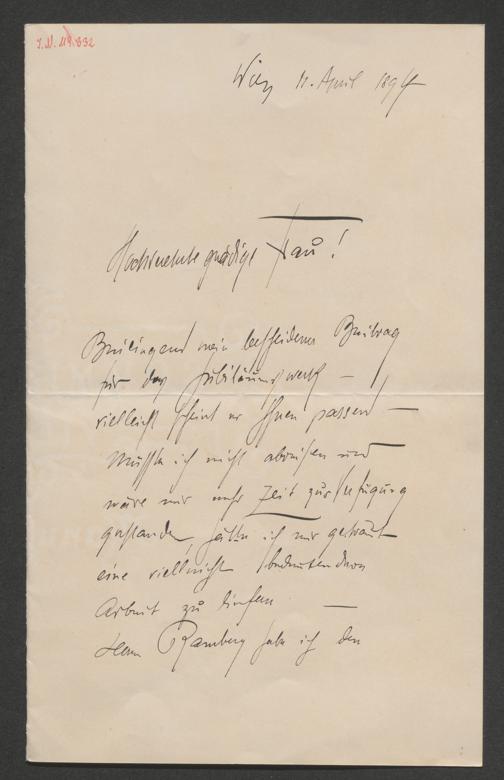 I.N. 119.832
Wien 11. April 1894
Hochverehrte gnädige Frau!
Beiliegend mein bescheidener Beitrag
für das Jubiläumswerk –
vielleicht scheint er Ihnen passend –
Müßte ich nicht abreisen und
wäre mir mehr Zeit zur Verfügung
gestanden, hätte ich mir getraut
eine vielleicht bedeutendere
Arbeit zu liefern –
Herrn Ramberg habe ich den